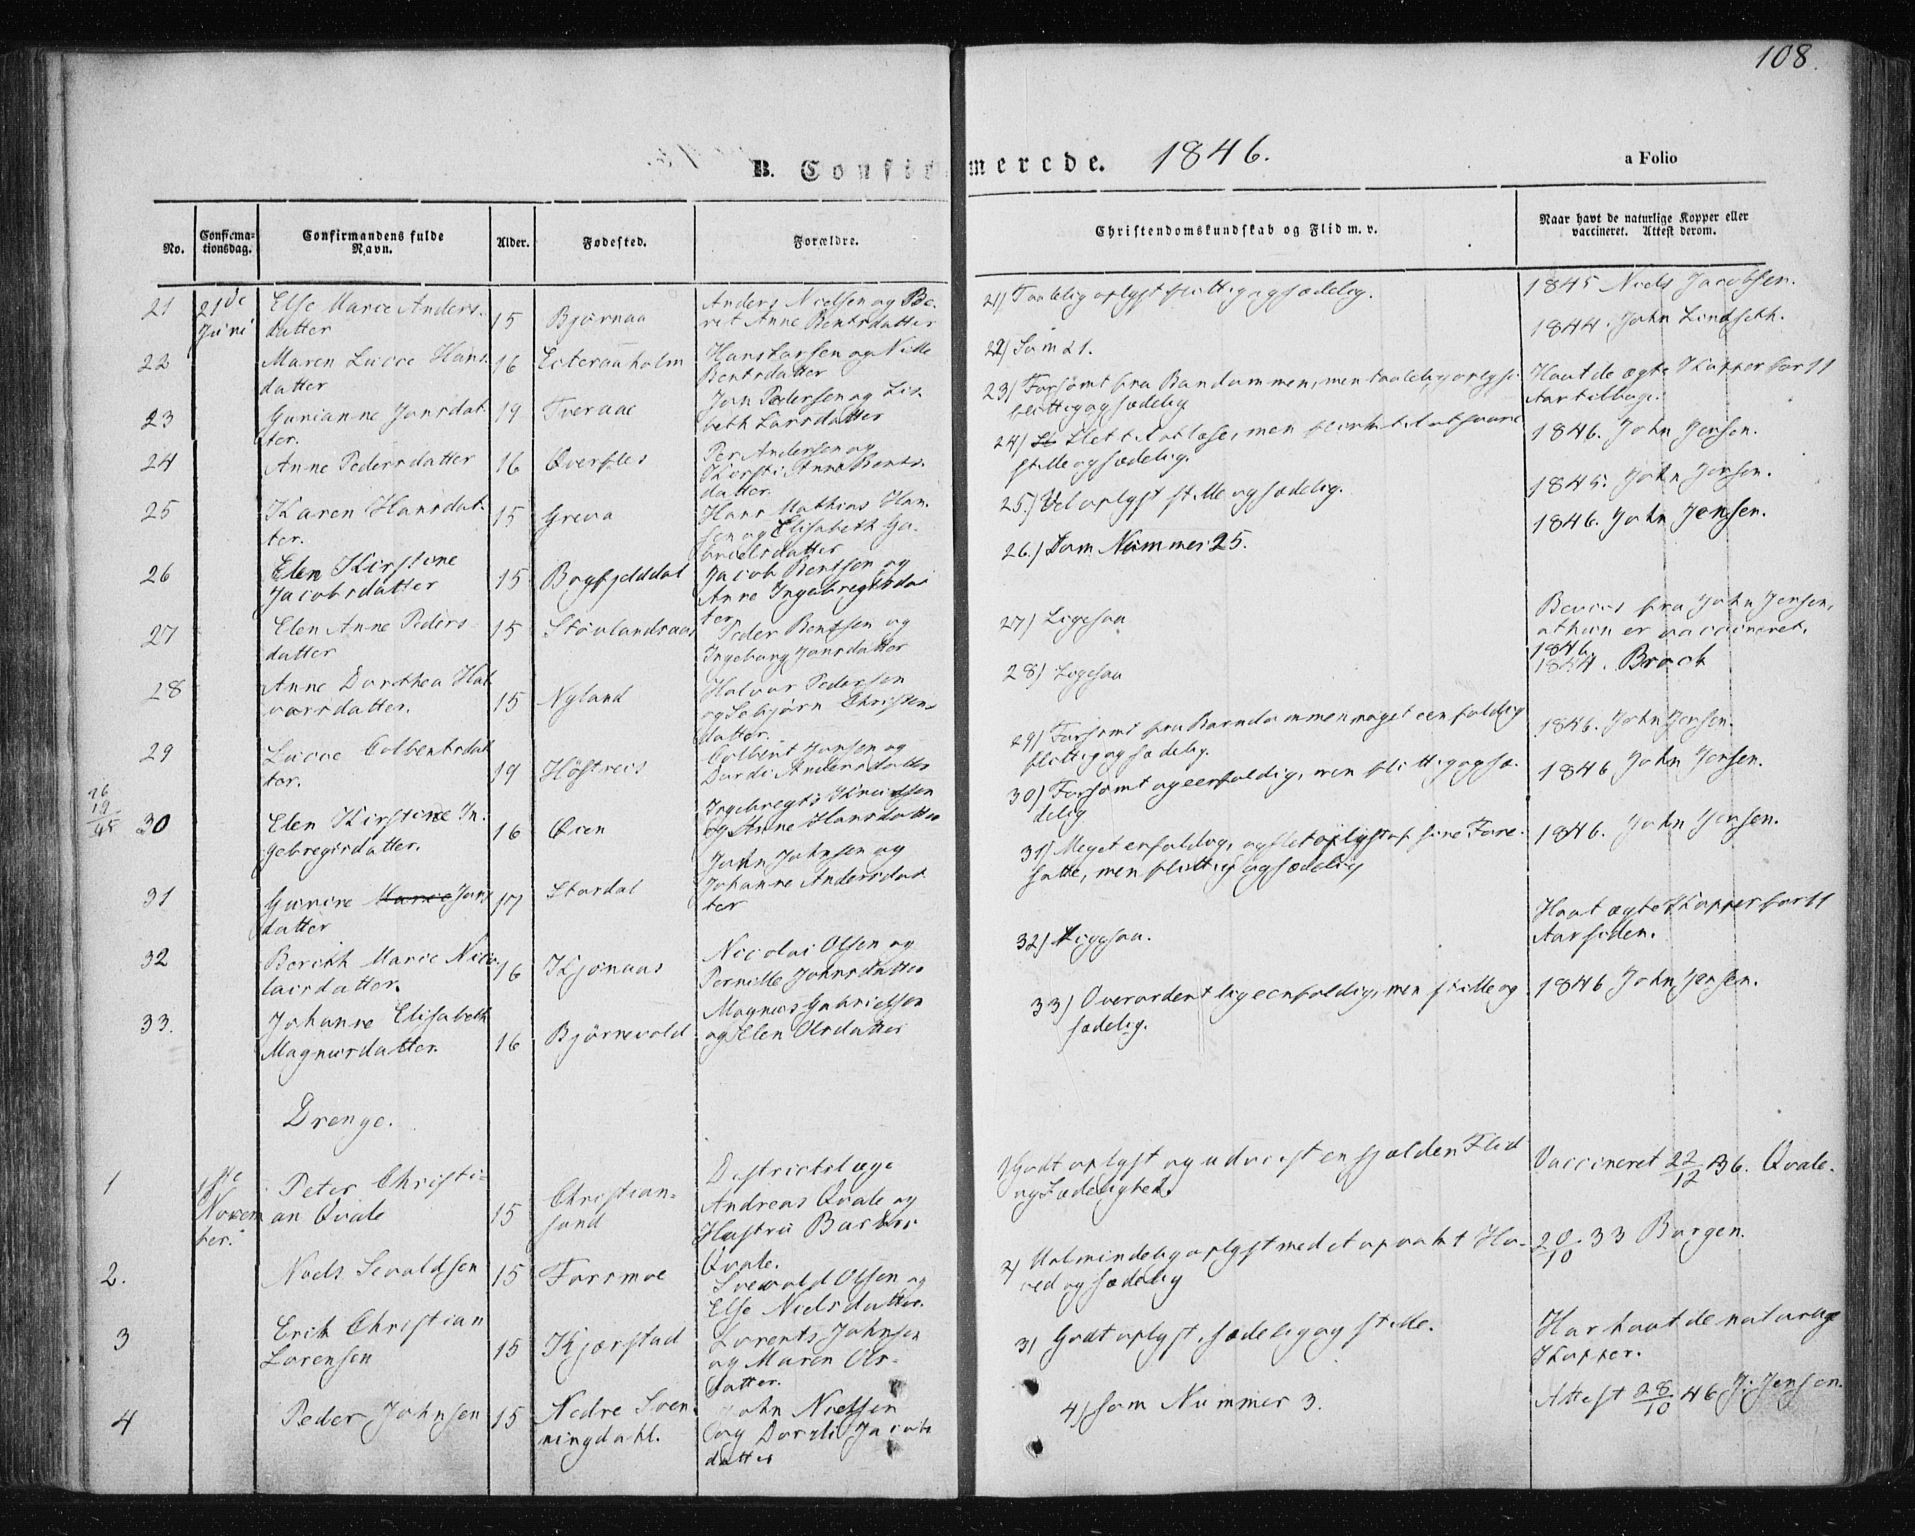 108.
B. Confirmerede. 1846.
a Folio
No.
Confirma-
tionsdag.
Confirmandens fulde
Navn.
Alder.
Fødested.
Forældre.
Christendomskundskab og Flid m. v.
Naar havt de naturlige Kopper eller
vaccineret. Attest derom.
21
21de
Juni
Else Marie Anders-
datter
15
Bjørnaa
Anders Nielsen og Be-
ret Anne Bentsdatter
21) Taalelig oplyst flittig og sædelig.
1845 Niels Jacobsen.
22
Maren Lucie Hans-
datter
16
Esteraaholm
Hans Larsen og Nille
Bentsdatter
22) Som 21.
1844. John Lindseth.
23
Gurianne Jonsdat-
ter.
19
Tveraae
Jon Pedersen og Lis-
beth Larsdatter
23) Forsømt fra Barndommen, men taalelig oplyst
flittig og sædelig
Havt de ægte Kopper for 11
Aar tilbage.
24
Anne Pedersdatter
16
Øverfles
Per Andersen og
Kirsti Anne Bents-
datter.
24) Slet til at læse, men flink til at svare
stille og sædelig.
1846. John Jensen.
25
Karen Hansdat-
ter.
15
Greva
Hans Mathias Han-
sen og Elisabeth Ga-
brielsdatter
25.) Vel oplyst stille og sædelig.
1845. John Jensen.
26
Elen Kirstine
Jacobsdatter
15
Bogfjelddal
Jacob Bentsen og
Anne Ingebregtsdat
ter
26.) Som Nummer 25.
1846. John Jensen.
27
Elen Anne Peders-
datter
15
Støvlandsaas
Peder Bentsen og
Ingeborg Jonsdatter
27) Ligesaa
Beviis fra John Jensen,
at hun er vaccineret.
1846.
28
Anne Dorothea Hal
vorsdatter.
15
Nyland
Halvor Pedersen
og Sebjørn Christens-
datter.
28) Ligesaa
Brock
29
Lucie Colbentsdat
ter.
19
Høstreis
Colbent Jonsen og
Dordi Andersdatter
29) Forsømt fra Barndommen noget eenfoldig
flittig og sædelig.
1846. John Jensen.
30
Elen Kirstine In-
gebregtsdatter.
16
Øien
Ingebregt Knudsen
og Anne Hansdatter
30) Forsømt og eenfoldig, men flittig og sæ-
delig
1846 John Jensen.
31
Gurine Marie Jons
datter
17
Stordal
John Johnsen og
Johanne Andersdat-
ter
31) Meget enfoldig, og slet oplyst af sine Fore-
satte, men flittig og sædelig
1846. John Jensen.
32
Berith Marie Nico-
laisdatter.
16
Kjønaas
Nicolai Olsen og
Pernille Johnsdatter
32) Ligesaa.
Havt ægte Kopper for 11
Aar siden.
33.
Johanne Elisabeth
Magnusdatter.
16
Bjørnevold
Magnus Gabrielsen
og Elen Olsdatter
33) Overordentlig eenfoldig, men stille og
sædelig.
1846 John Jensen.
Drenge.
1
1ste
Novem
ber.
Peter Christi-
an Qvale
15
Christian-
sund
Distriktslæge
Andreas Qvale og
Hustru Barbra
Qvale.
1) Godt oplyst og udviist en sjælden Flid
og Sædelighed.
Vaccineret 22/12 36. Qvale.
2.
Niels Sivaldsen
15
Forsmoe
Sivald Olsen og
Else Nielsdatter.
2) Ualmindelig oplyst med et opvakt Ho-
ved og sædelig
20/10 33 Borgen.
3
Erik Christian
Lorensen
15
Kjærstad
Lorents Johnsen
og Maren Ols-
datter.
3) Godt oplyst, sædelig og stille.
Har havt de naturlige
Kopper.
4
Peder Johnsen
15
Nedre Sven-
ningdahl.
John Nielsen
og Dordi Jacobs
datter
4) som Nummer 3.
Attest 28/10 46 J: Jensen.